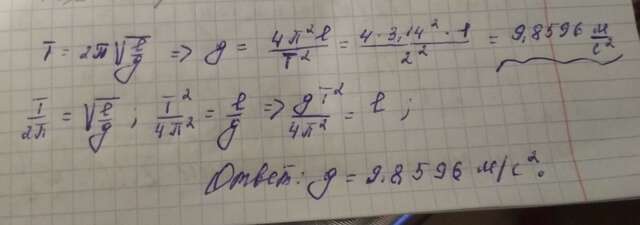 T = 2π√(l/g) => g = 4π²l/T² = 4·3,14²·1/2² = 9,8596 м/с²
T/2π = √(l/g) ; T²/4π² = l/g => gT²/4π² = l ;
Ответ: g = 9,8596 м/с².